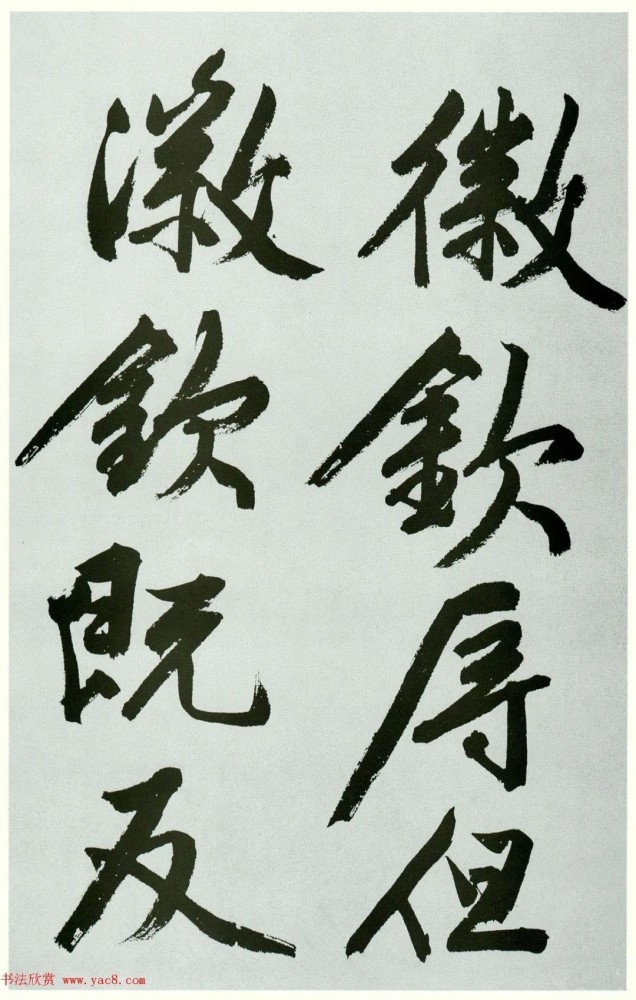 徽钦辱但
徽钦既反
书法欣赏 www.yac8.com